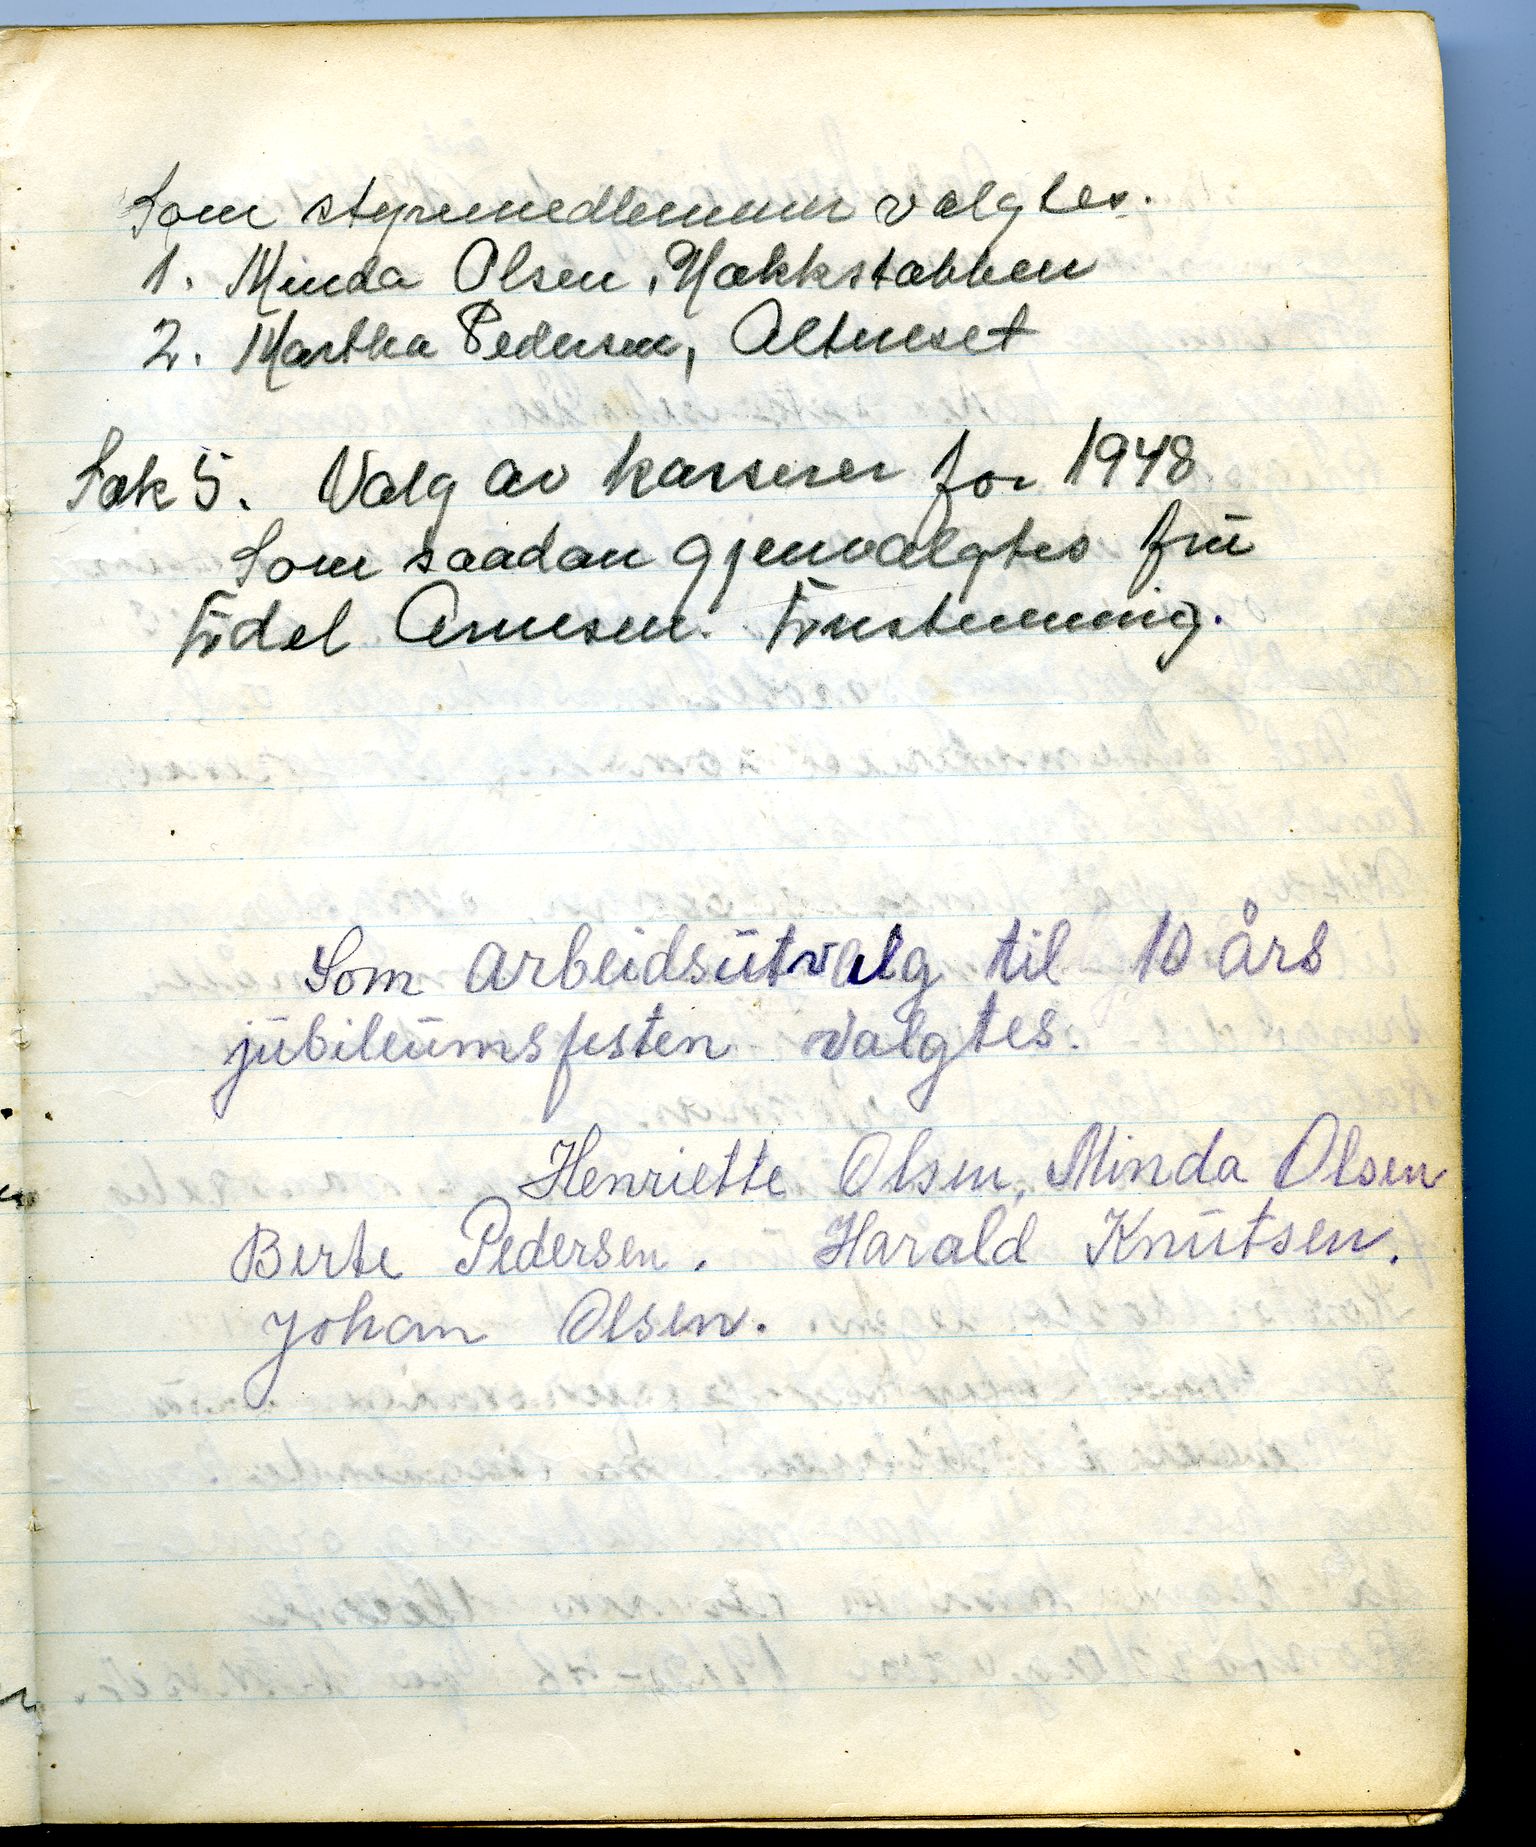 Som styremedlemmer valgtes.
1. Minda Olsen, Hakkstabben
2. Martha Pedersen, Altneset
Sak 5. Valg av kasserer for 1948
Som saadan gjenvalgtes frü
Edel Arnesen. Enstemmig.
Som arbeidsütvalg til 10 års
jübileümsfesten valgtes.
Henriette Olsen, Minda Olsen
Berte Pedersen. Harald Knütsen.
Johan Olsen.